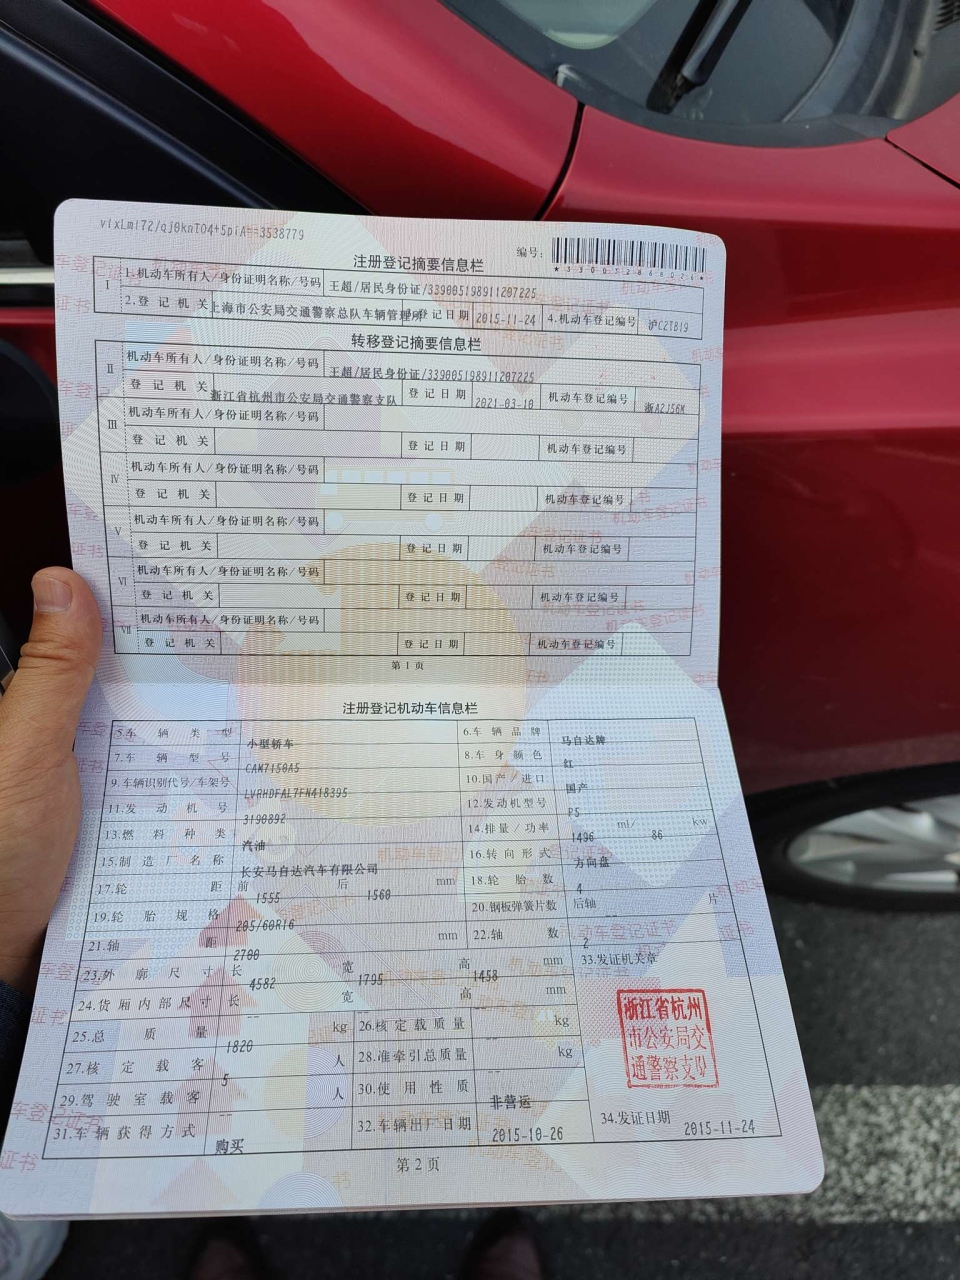 vixLml72/qj0knTO4+5piA==3538779
编号:
注册登记摘要信息栏
I 1.机动车所有人/身份证明名称/号码 王超/居民身份证/339005198911207225
2.登记机关 上海市公安局交通警察总队车辆管理所 登记日期 2015-11-24 4.机动车登记编号 沪C2TB19
转移登记摘要信息栏
II 机动车所有人/身份证明名称/号码 王超/居民身份证/339005198911207225
登记机关 浙江省杭州市公安局交通警察支队 登记日期 2021-03-10 机动车登记编号 浙A2J56K
III 机动车所有人/身份证明名称/号码
登记机关 登记日期 机动车登记编号
IV 机动车所有人/身份证明名称/号码
登记机关 登记日期 机动车登记编号
V 机动车所有人/身份证明名称/号码
登记机关 登记日期 机动车登记编号
VI 机动车所有人/身份证明名称/号码
登记机关 登记日期 机动车登记编号
VII 机动车所有人/身份证明名称/号码
登记机关 登记日期 机动车登记编号
第1页
注册登记机动车信息栏
5.车辆类型 小型轿车 6.车辆品牌 马自达牌
7.车辆型号 CAM7150A5 8.车身颜色 红
9.车辆识别代号/车架号 LVRHDFAL7FN418395 10.国产/进口 国产
11.发动机号 3190892 12.发动机型号 P5
13.燃料种类 汽油 14.排量/功率 1496 ml/ 86 kw
15.制造厂名称 长安马自达汽车有限公司 16.转向形式 方向盘
17.轮距 前 1555 后 1560 mm 18.轮胎数 4
19.轮胎规格 205/60R16 20.钢板弹簧片数 后轴 -- 片
21.轴距 2700 mm 22.轴数 2
23.外廓尺寸 长 4582 宽 1795 高 1458 mm 33.发证机关章
24.货厢内部尺寸 长 -- 宽 -- 高 -- mm
浙江省杭州
市公安局交
通警察支队
25.总质量 1820 kg 26.核定载质量 -- kg
27.核定载客 5 人 28.准牵引总质量 -- kg
29.驾驶室载客 -- 人 30.使用性质 非营运
31.车辆获得方式 购买 32.车辆出厂日期 2015-10-26 34.发证日期 2015-11-24
第2页